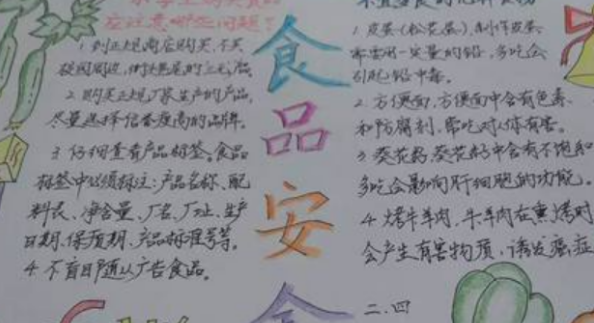 应注意哪些问题?
1 到正规商店购买,不买
校园周边、街头巷尾的"三无"产品
2 购买正规厂家生产的产品,
尽量选择信誉度高的品牌。
3 仔细查看产品标签。食品
标签中必须标注:产品名称、配
料表、净含量、厂名、厂址、生产
日期、保质期、产品标准号等。
4 不盲目随从广告食品。
食
品
安
全
1 皮蛋(松花蛋),制作皮蛋
需要用一定量的铅,多吃会
引起铅中毒。
2. 方便面,方便面中含有色素
和防腐剂,常吃对人体有害。
3 葵花籽,葵花籽中含有不饱和
多吃会影响肝细胞的功能。
4 烤牛羊肉,牛羊肉在熏烤时
会产生有害物质,诱发癌症
二.四